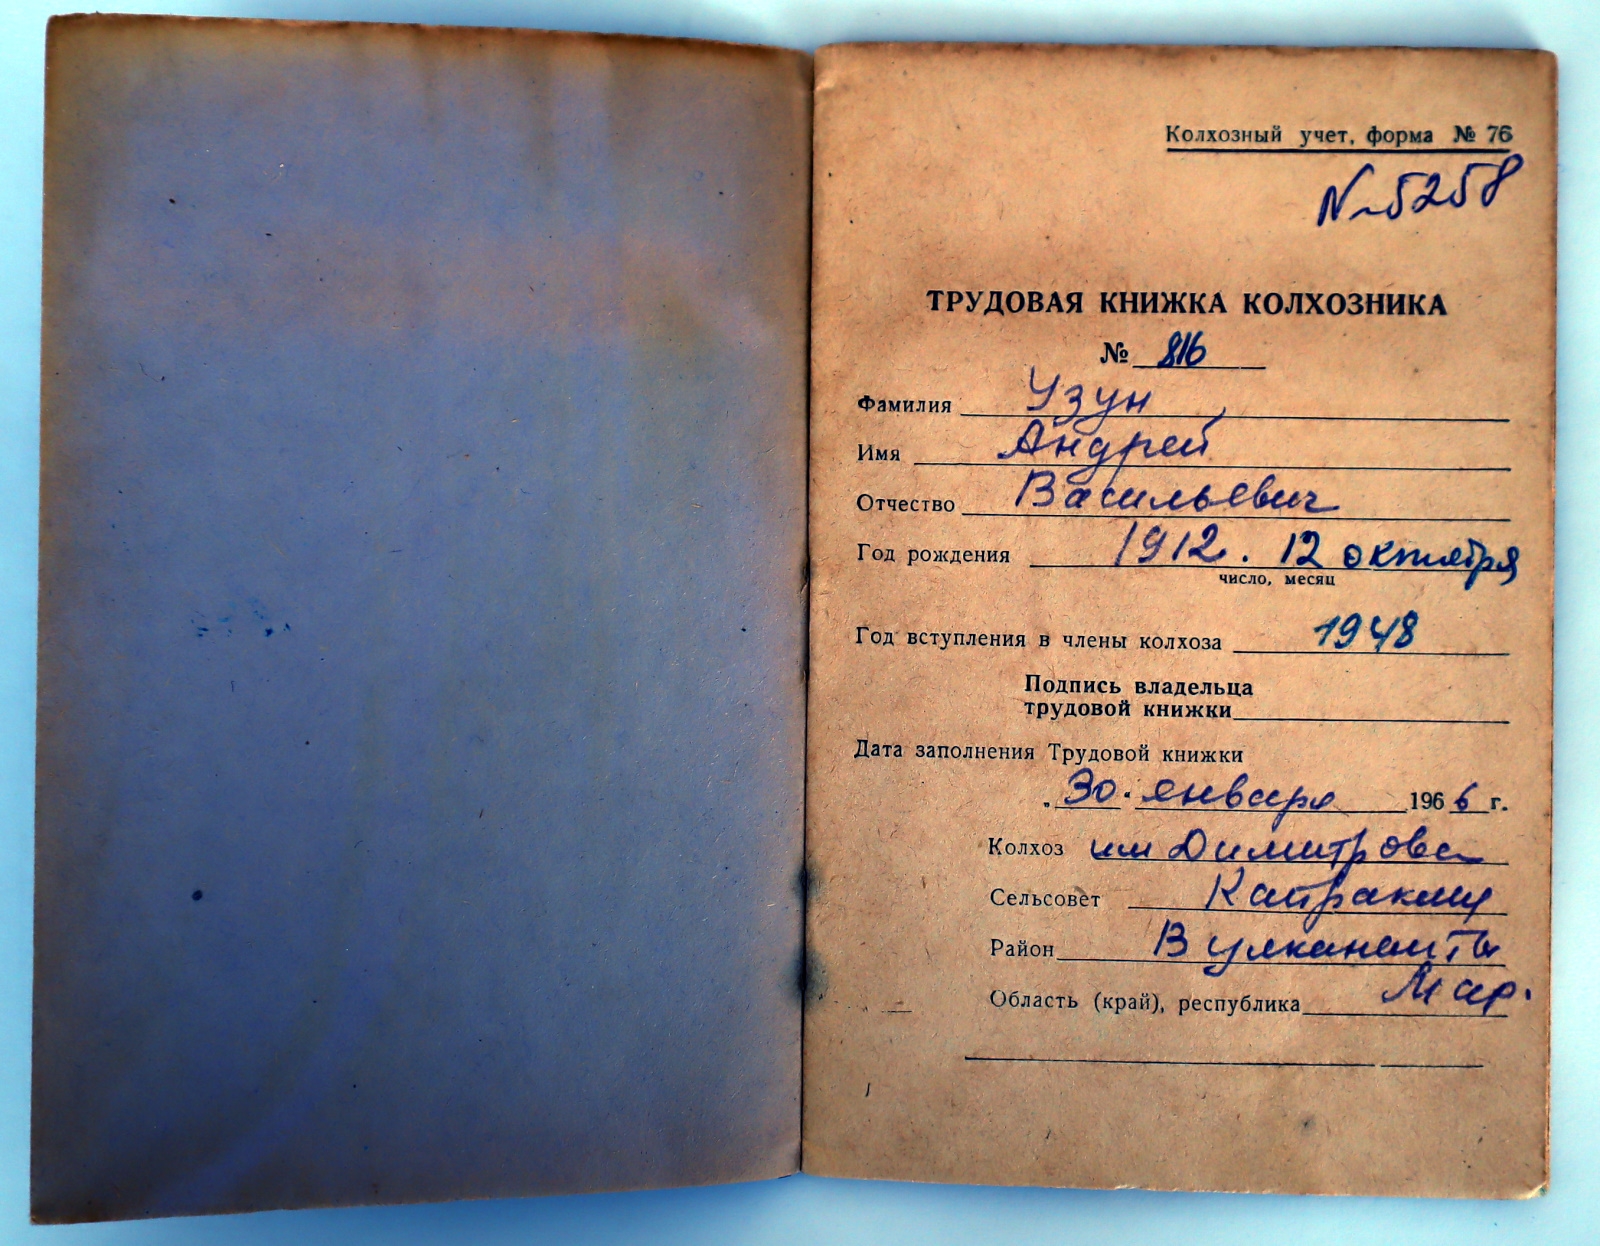 Колхозный учет, форма № 76
N 5258
ТРУДОВАЯ КНИЖКА КОЛХОЗНИКА
№ 816
Фамилия Узун
Имя Андрей
Отчество Васильевич
Год рождения 1912. 12 октября
число, месяц
Год вступления в члены колхоза 1948
Подпись владельца
трудовой книжки
Дата заполнения Трудовой книжки
„30" января 1966 г.
Колхоз им Димитрова
Сельсовет
Район
Область (край), республика